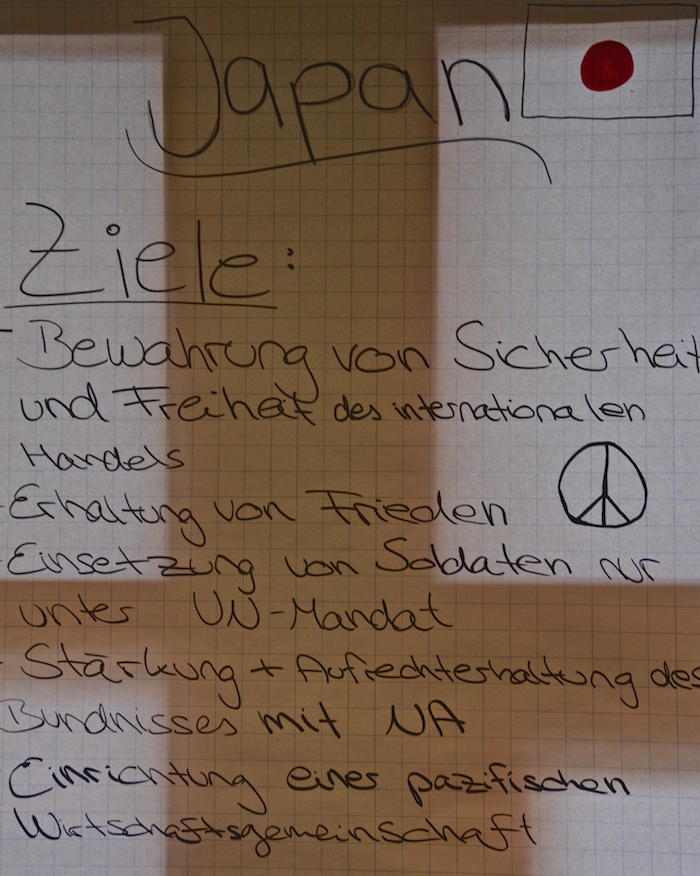 Japan
Ziele:
- Bewahrung von Sicherheit
und Freiheit des internationalen
Handels
- Erhaltung von Frieden
- Einsetzung von Soldaten nur
unter UN-Mandat
- Stärkung + Aufrechterhaltung des
Bündnisses mit NA
- Einrichtung einer pazifischen
Wirtschaftsgemeinschaft